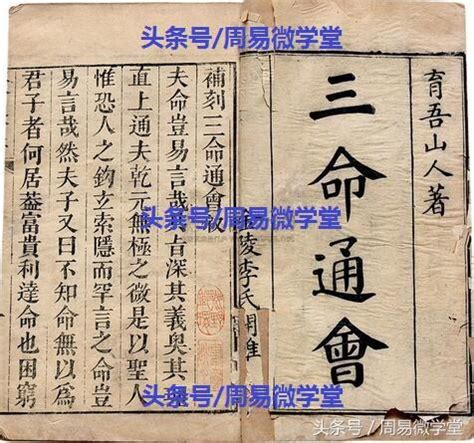 头条号/周易微学堂
育吾山人著
三命通會
陵李氏
補刻三命通會
夫命豈易言哉其旨深其義奥其
直上通夫乾元無極之微是以聖人
惟恐人之鈎玄索隱而罕言之命豈
易言哉然夫子又曰不知命無以為
君子者何居葢富貴利達命也困窮
头条号/周易微学堂
头条号/周易微学堂
头条号 / 周易微学堂